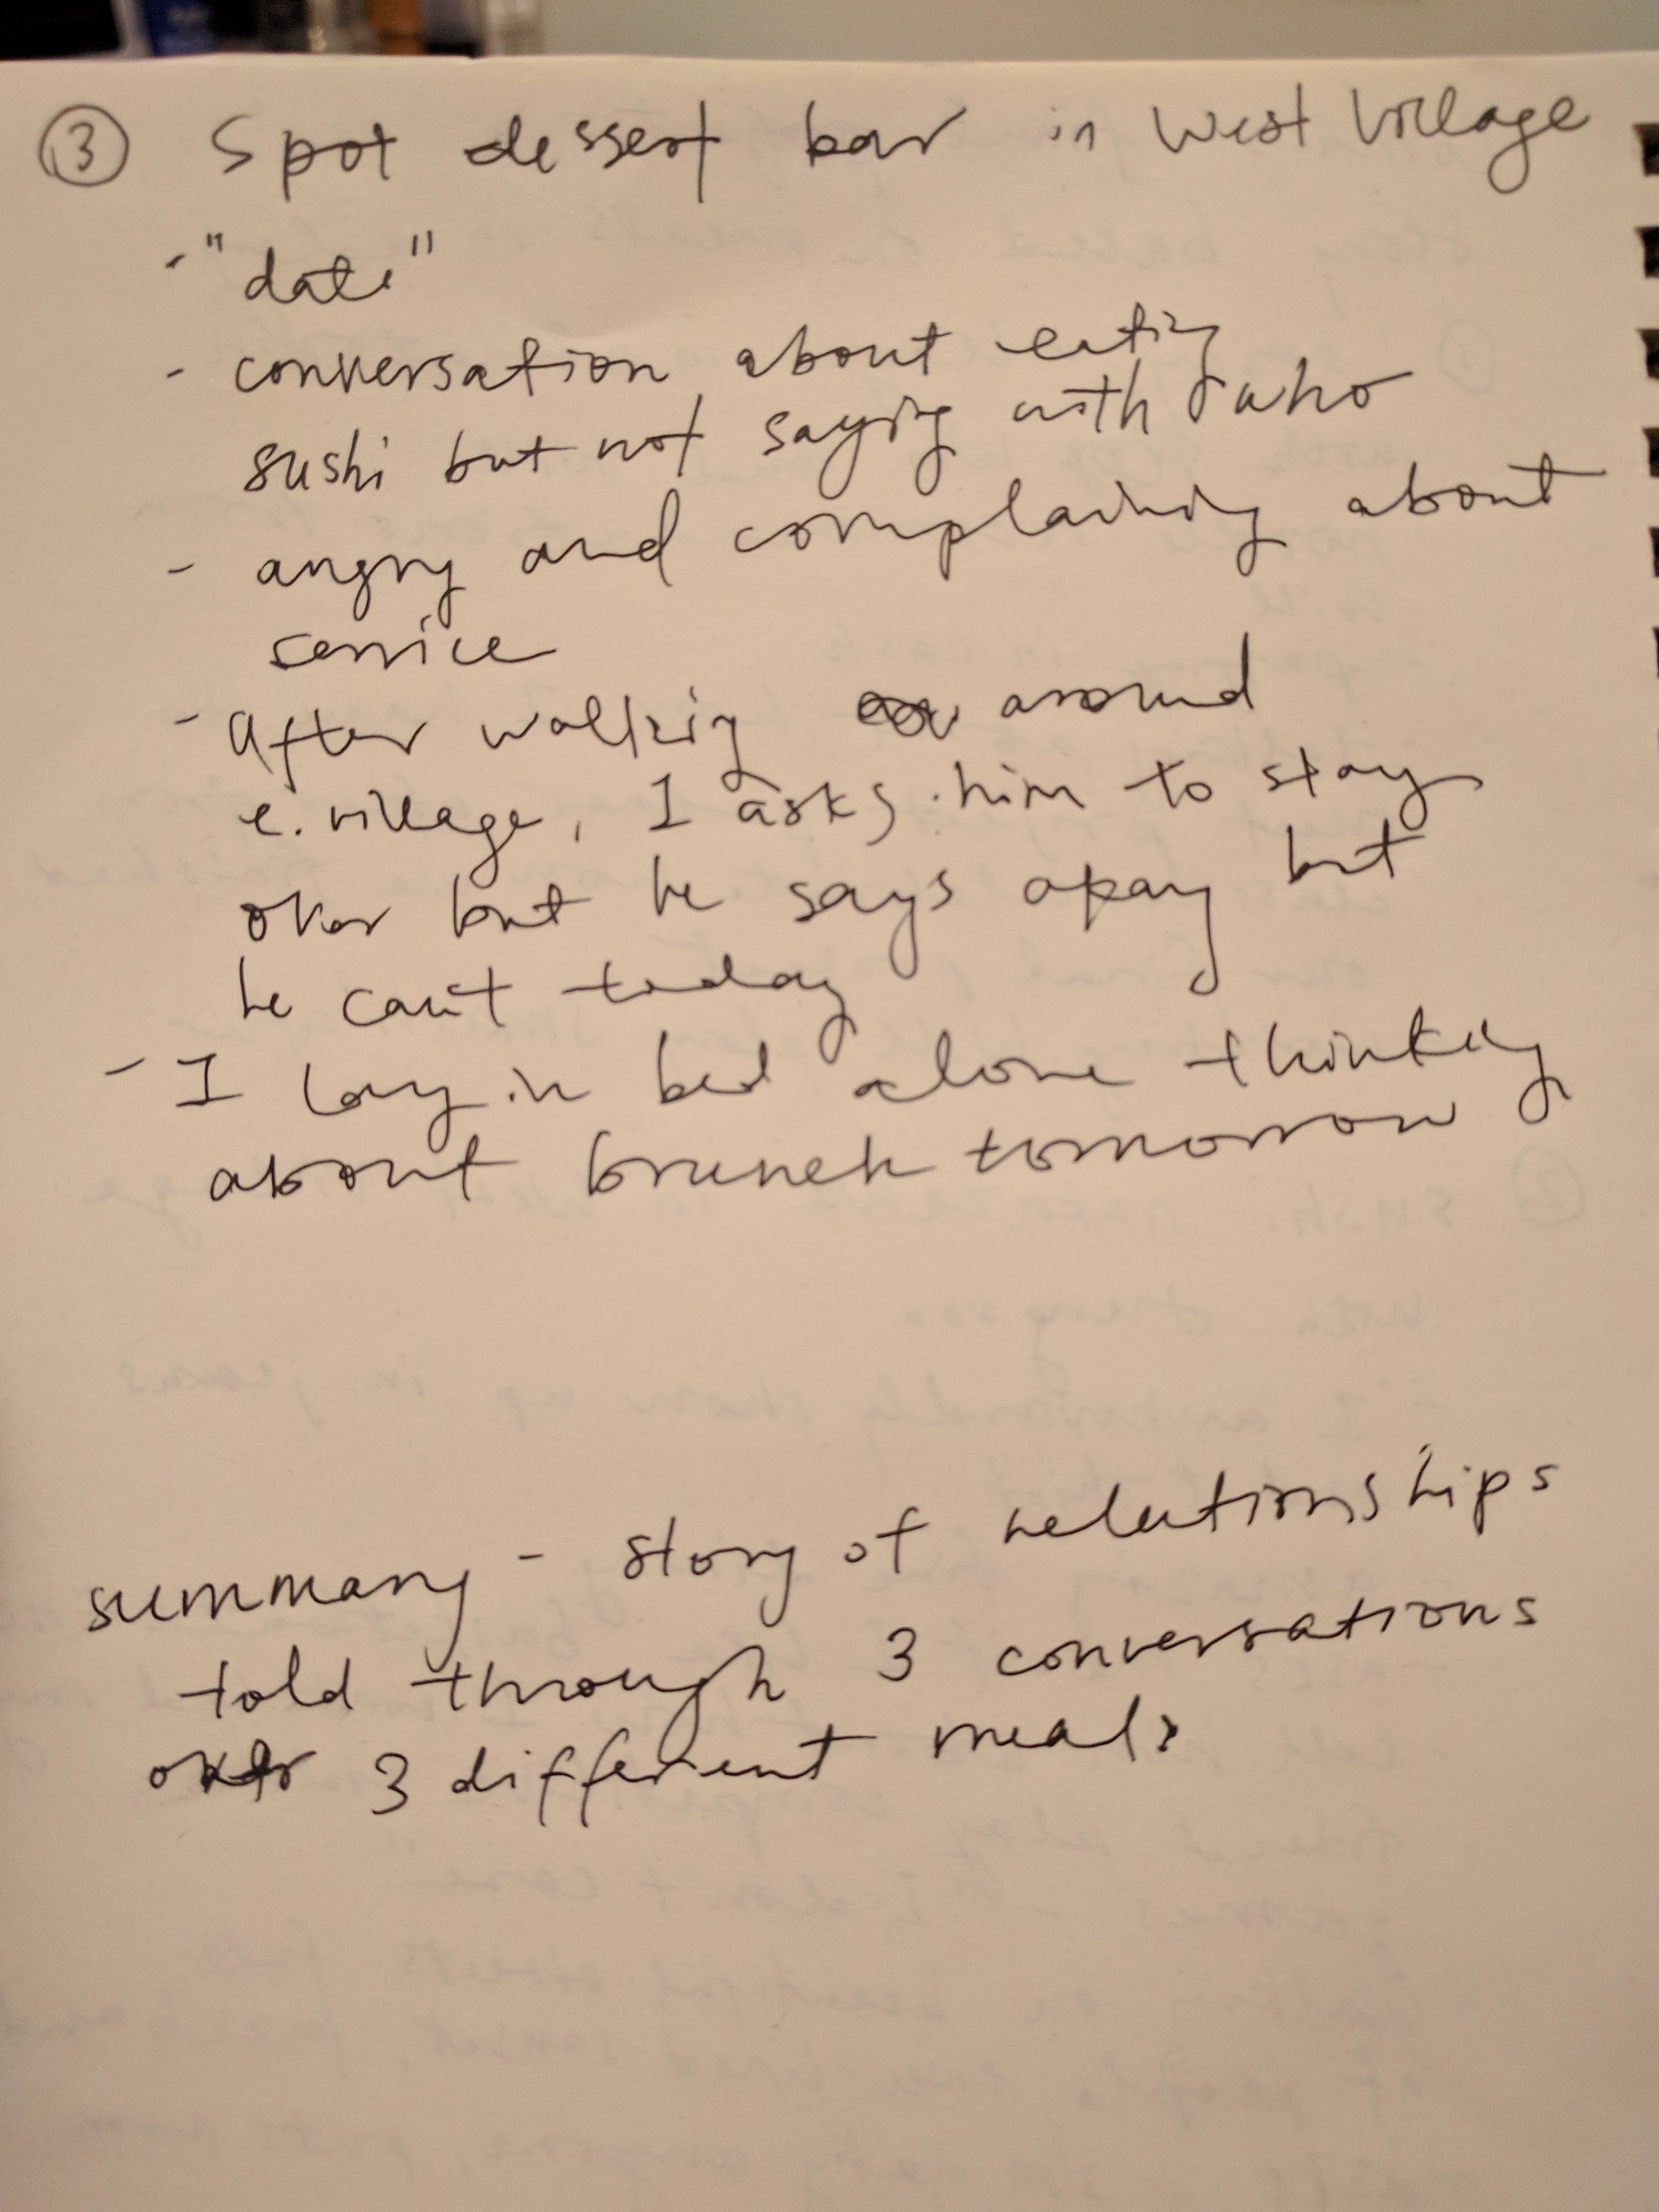 ③ Spot dessert bar in West Village
- "date"
- conversation about eating
sushi but not saying with who
- angry and complaining about
service
- After walking around
e. village, I asks him to stay
over but he says opay but
he can't today
- I lay in bed alone thinking
about brunch tomorrow
summary - story of relationships
told through 3 conversations
over 3 different meals